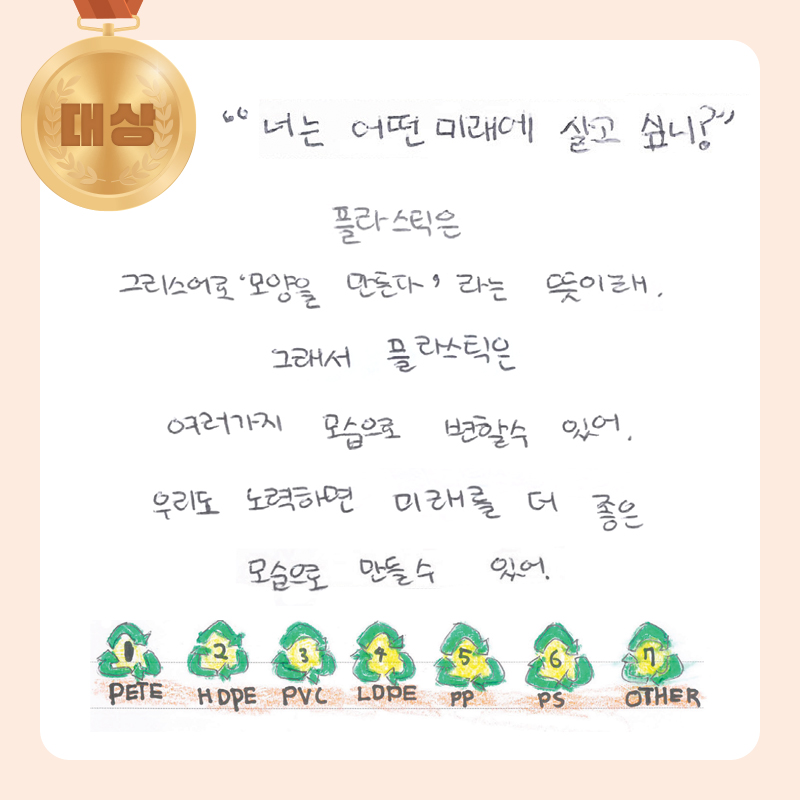 대상
“너는 어떤 미래에 살고 싶니?”
플라스틱은
그리스어로 '모양을 만든다' 라는 뜻이래.
그래서 플라스틱은
여러가지 모습으로 변할수 있어.
우리도 노력하면 미래를 더 좋은
모습으로 만들수 있어.
1 2 3 4 5 6 7
PETE HDPE PVC LDPE PP PS OTHER